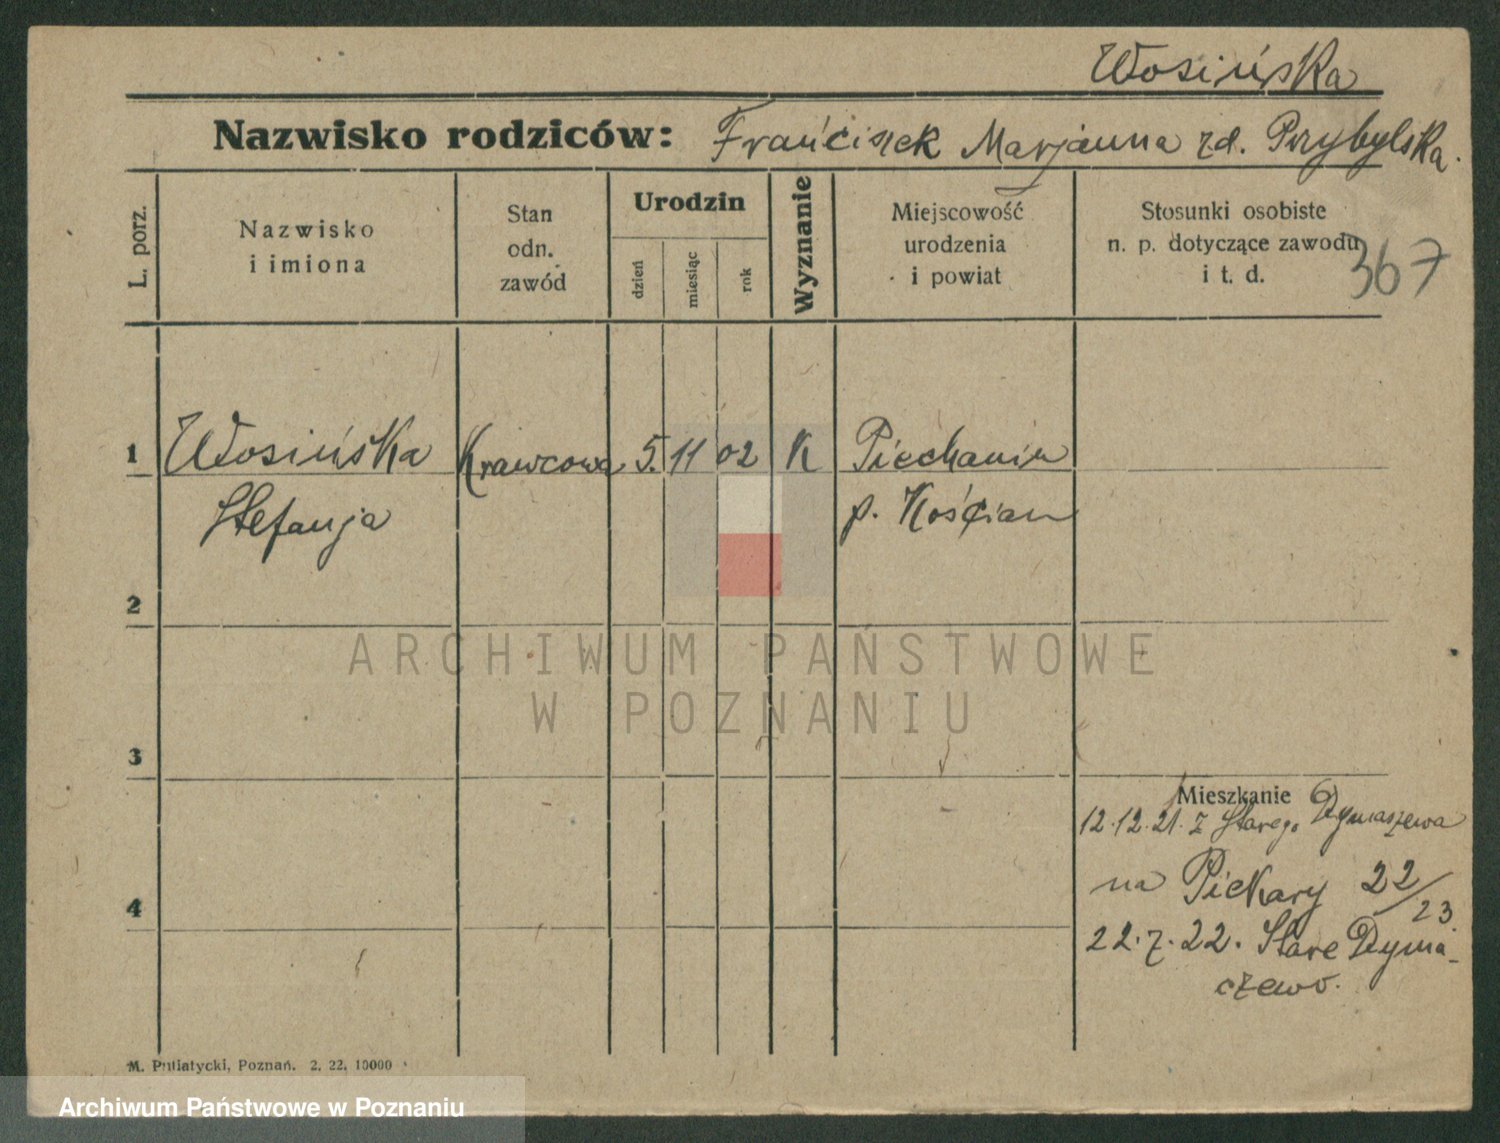 Wosińska
Nazwisko rodziców: Franciszek Marjanna zd. Przybylska.
L. porz.
Nazwisko
i imiona
Stan
odn.
zawód
Urodzin
dzień
miesiąc
rok
Wyznanie
Miejscowość
urodzenia
i powiat
Stosunki osobiste
n. p. dotyczące zawodu
i t. d.
367
1 Wosińska Krawcowa 5. 11 02 K Piechanin
Stefanja p. Kościan
2
ARCHIWUM PAŃSTWOWE
W POZNANIU
3
Mieszkanie
12.12.21. z Starego Dymaszewa
4
na Piekary 22/23.
22.7.22. Stare Dyma-
czewo.
M. Putiatycki, Poznań. 2. 22. 10000
Archiwum Państwowe w Poznaniu